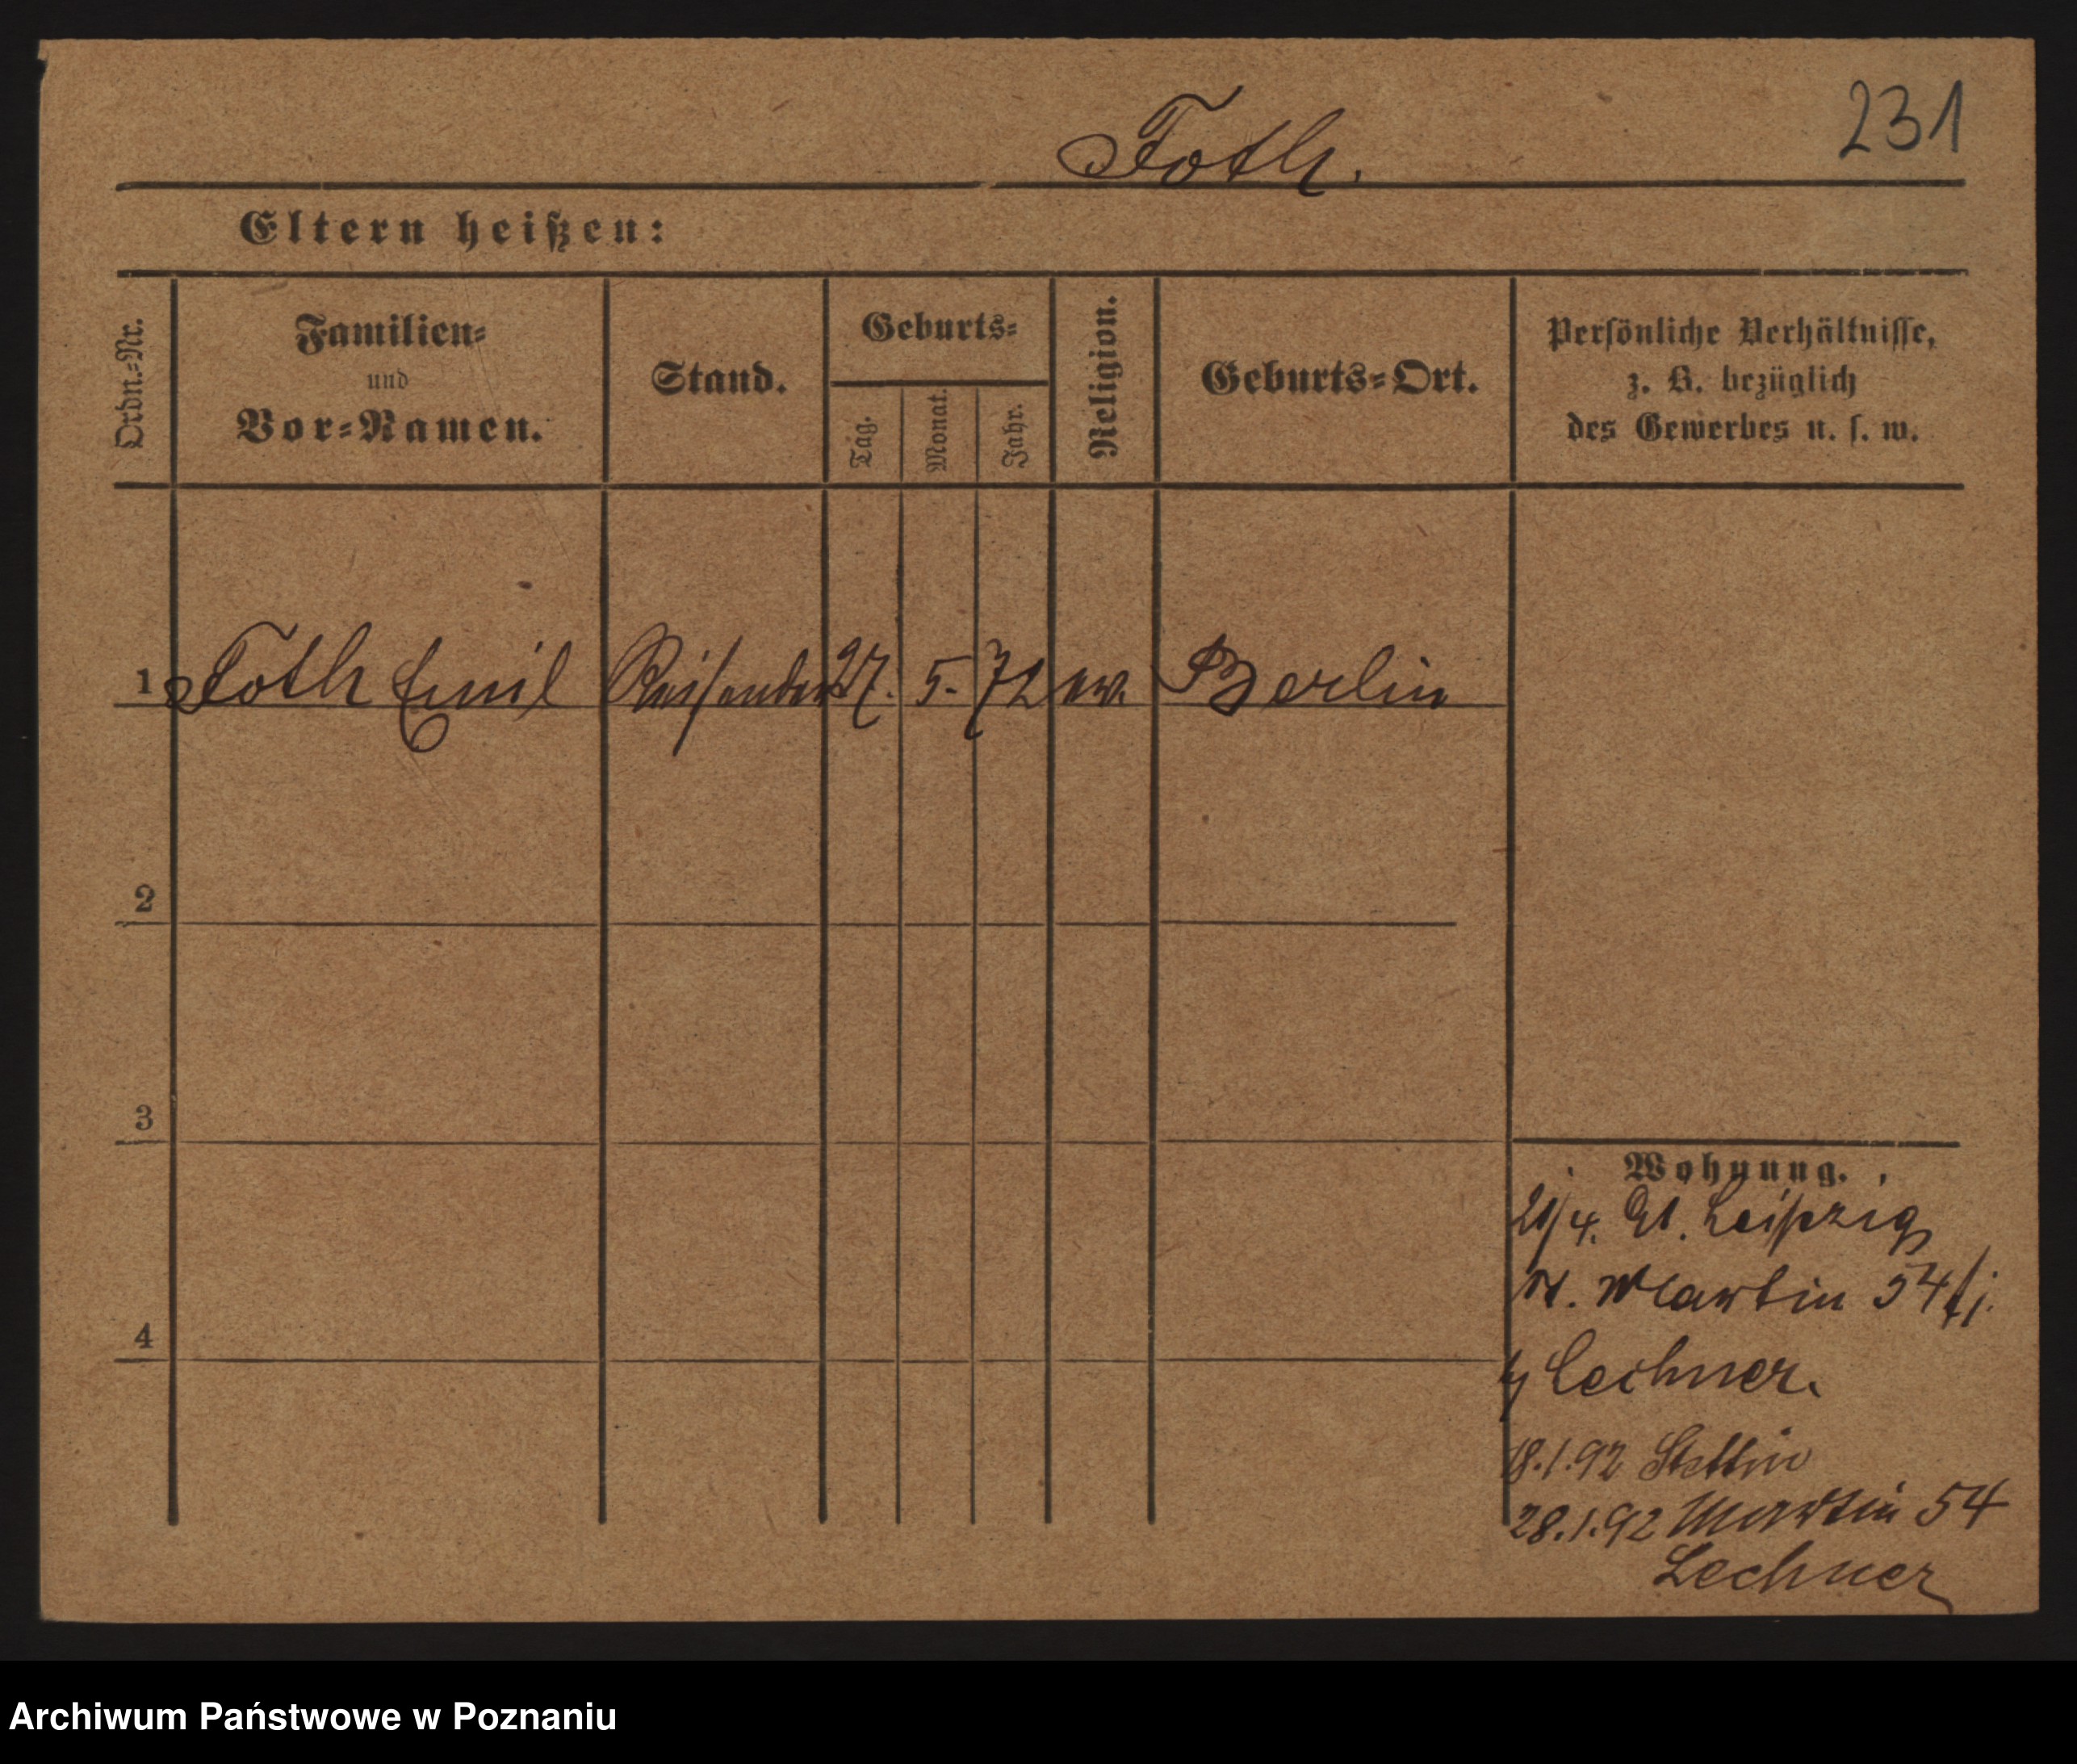 231
Foth.
Eltern heißen:
Ordn.-Nr.
Familien-
und
Vor-Namen.
Stand.
Geburts-
Tag.
Monat.
Jahr.
Religion.
Geburts-Ort.
Persönliche Verhältnisse,
z. B. bezüglich
des Gewerbes u. s. w.
1 Foth Emil Reisender 27. 5. 72 ev. Berlin
2
3
4
Wohnung.
21/4. 91. Leipzig
Martin 54
Lechner.
18.1.92 Stettin
28.1.92 Martin 54
Lechner
Archiwum Państwowe w Poznaniu